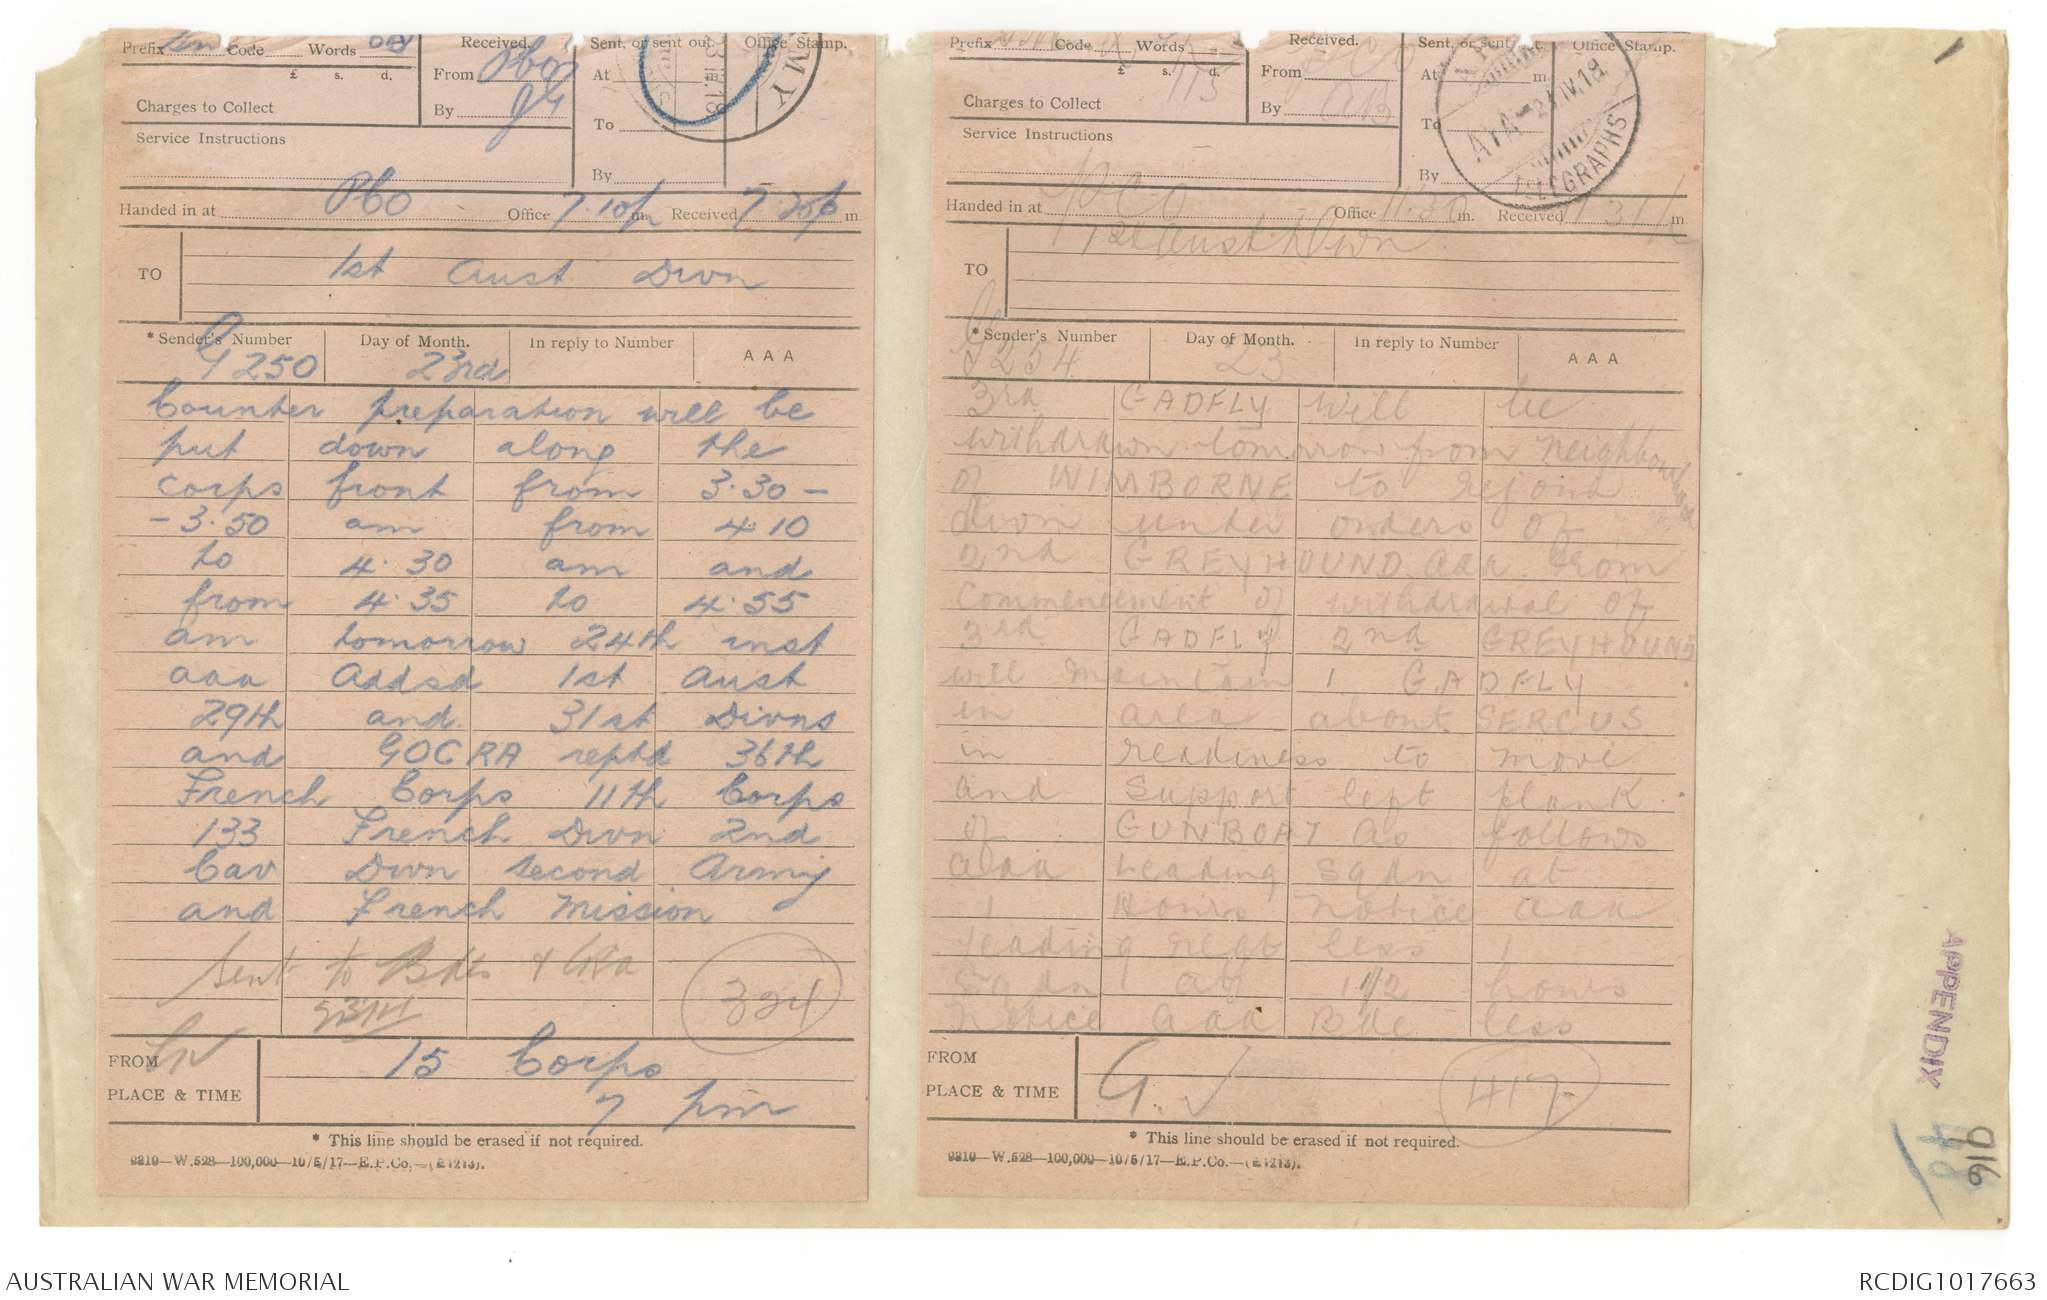 Prefix Sm Code Words
£ s. d.
Charges to Collect
Service Instructions
Received.
From Pbo
By
Sent, or sent out.
At m.
To
By
Office Stamp.
MY
Handed in at Pbo Office 7.10p m. Received 7 20p m
TO 1st Aust Divn
* Sender's Number Day of Month. In reply to Number AAA
G 250 23rd
Counter preparation will be
put down along the
corps front from 3.30 -
- 3.50 am from 4.10
to 4.30 am and
from 4.35 to 4.55
am tomorrow 24th inst
aaa Addsd 1st Aust
29th and 31st Divns
and GOCRA reptd 36th
French Corps 11th Corps
133 French Divn 2nd
Cav Divn second Army
and French Mission
Sent to Bdes & CRA
23/4
324
FROM 15 Corps
PLACE & TIME 7 pm
* This line should be erased if not required.
9810—W.528—100,000—10/5/17—E.P.Co.—(E1213).
Prefix Code Words
£ s. d.
Charges to Collect
Service Instructions
Received.
From PCO
By AB
Sent, or sent out.
At m.
To
By
Office Stamp.
ARMY TELEGRAPHS
Handed in at PCO Office 11.30 m. Received m
TO 1st Aust Divn
* Sender's Number Day of Month. In reply to Number AAA
G254 23
3rd GADFLY will be
withdrawn tomorrow from neighbourhood
of WIMBORNE to rejoin
Divn under orders of
2nd GREYHOUND aaa From
commencement of withdrawal of
3rd GADFLY 2nd GREYHOUND
will maintain 1 GADFLY
in area about SERCUS
in readiness to move
and support left flank
of GUNBOAT as follows
aaa Leading Sqdn at
1 Hours notice aaa
leading regt less 1
Sqdn at 1 1/2 hours
notice aaa Bde less
FROM
PLACE & TIME
G. ✓
417
* This line should be erased if not required.
9810—W.528—100,000—10/5/17—E.P.Co.—(E1213).
APPENDIX
48
916
AUSTRALIAN WAR MEMORIAL
RCDIG1017663